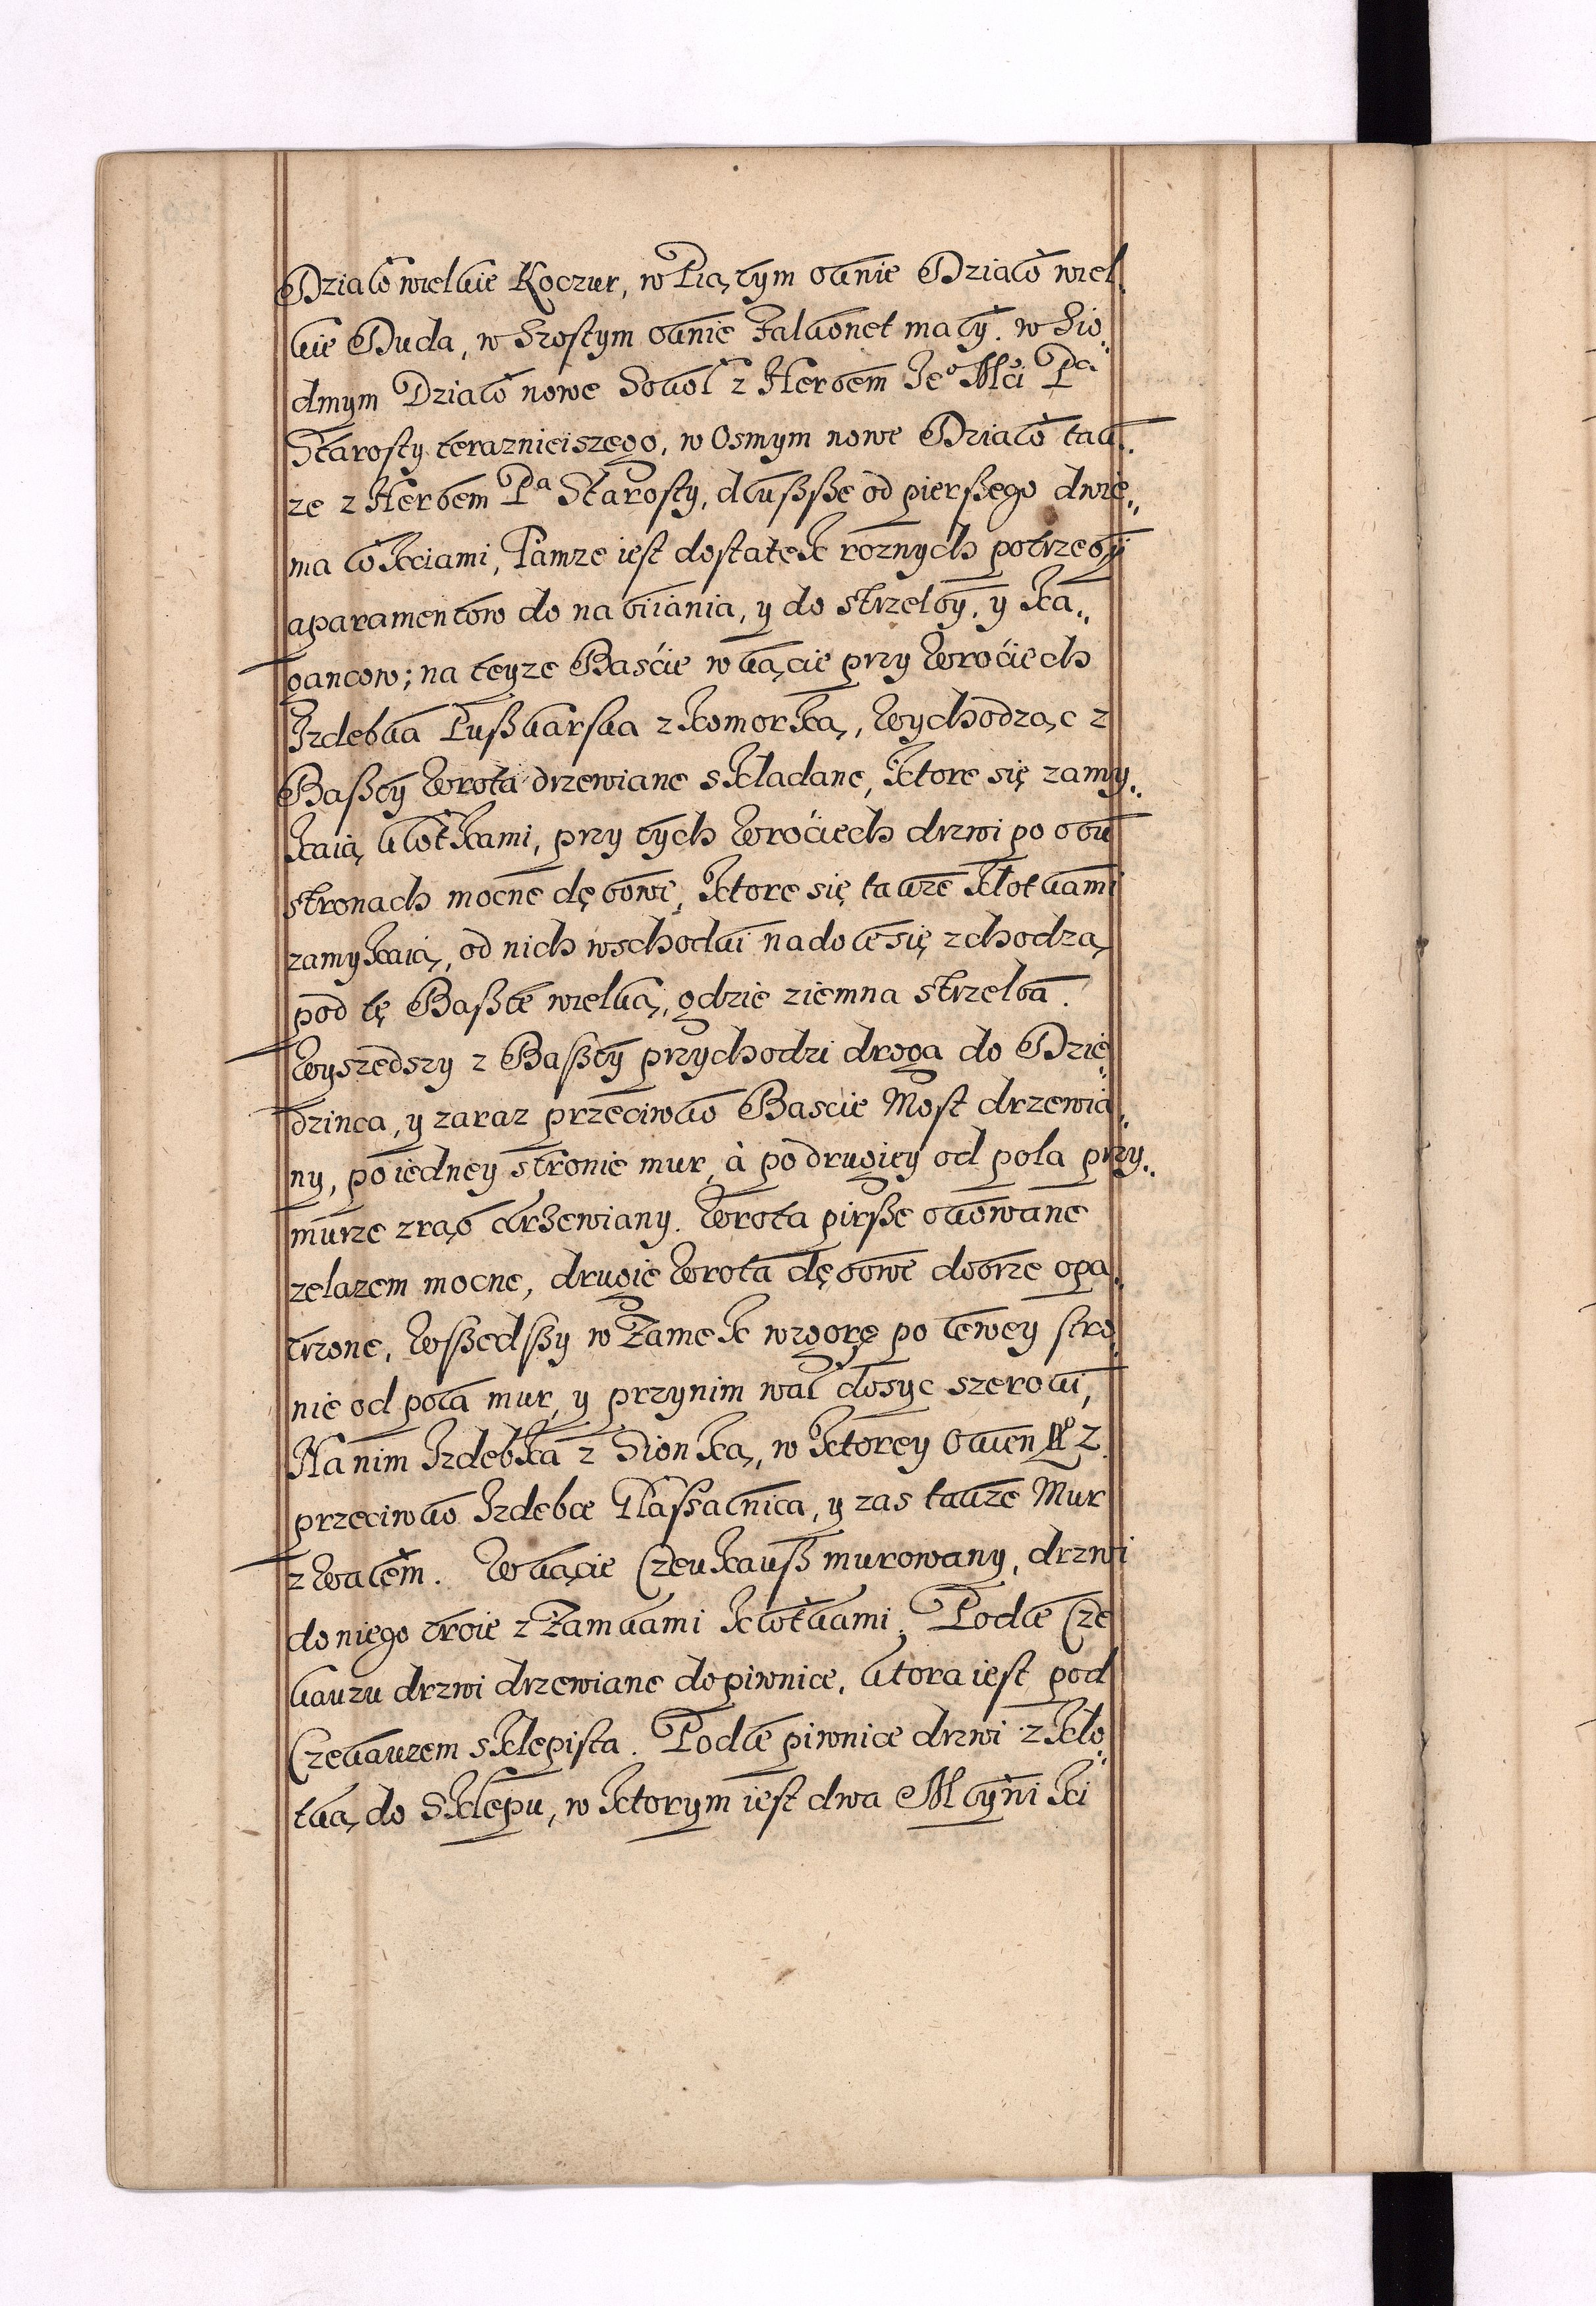 Działo wielkie Koczur, w Piątym oknie Działo wiel„
kie Duda, w Szostym oknie Falkonet mały. w Sio„
dmym Działo nowe Sokoł z Herbem Jeº Mći Pª
Starosty teraznieiszego, w Osmym nowe Działo tak„
ze z Herbem Pª Starosty, dłußße od pierßego dwie„
ma łokciami, Tamze iest dostatek roznych potrzeby
aparamentow do nabiiania, y do strzelby, y ka„
gancow; na teyze Baśćie w kącie przy Wroćiech
Izdebka Pußkarska z komorką, Wychodząc z
Baßty Wrota drzewiane składane, ktore się zamy„
kaią kłotkami, przy tych Wroćiech drzwi po obu
stronach mocne dębowe, ktore się takze kłotkami
zamykaią, od nich wschodki na doł się zchodzą
pod tę Baßtę wielką, gdzie ziemna strzelba.
Wyszedszy z Baßty przychodzi droga do Dzie„
dzinca, y zaraz przeciwko Bascie Most drzewia„
ny, po iedney stronie mur, à po drugiey od pola przy„
murze zrąb drzewiany. Wrota pirße okowane
zelazem mocne, drugie Wrota dębowe dobrze opa„
trzone, Wßedßy w Zamek wzgorę po lewey stro„
nie od pola mur, y przynim wał dosyc szeroki,
Na nim Izdebka z Sionką, w ktorey Okien Nº 2.
przeciwko Izdebce Piassalnica, y zas takze Mur
z Wałem. W kącie Czeukauß murowany, drzwi
do niego troie z Zamkami kłotkami. Podle Cze
kauzu drzwi drzewiane do piwnice, ktora iest pod
Czekauzem sklepista. Podle piwnice drzwi z kło„
tką do Sklepu, w ktorym iest dwa Młyniki